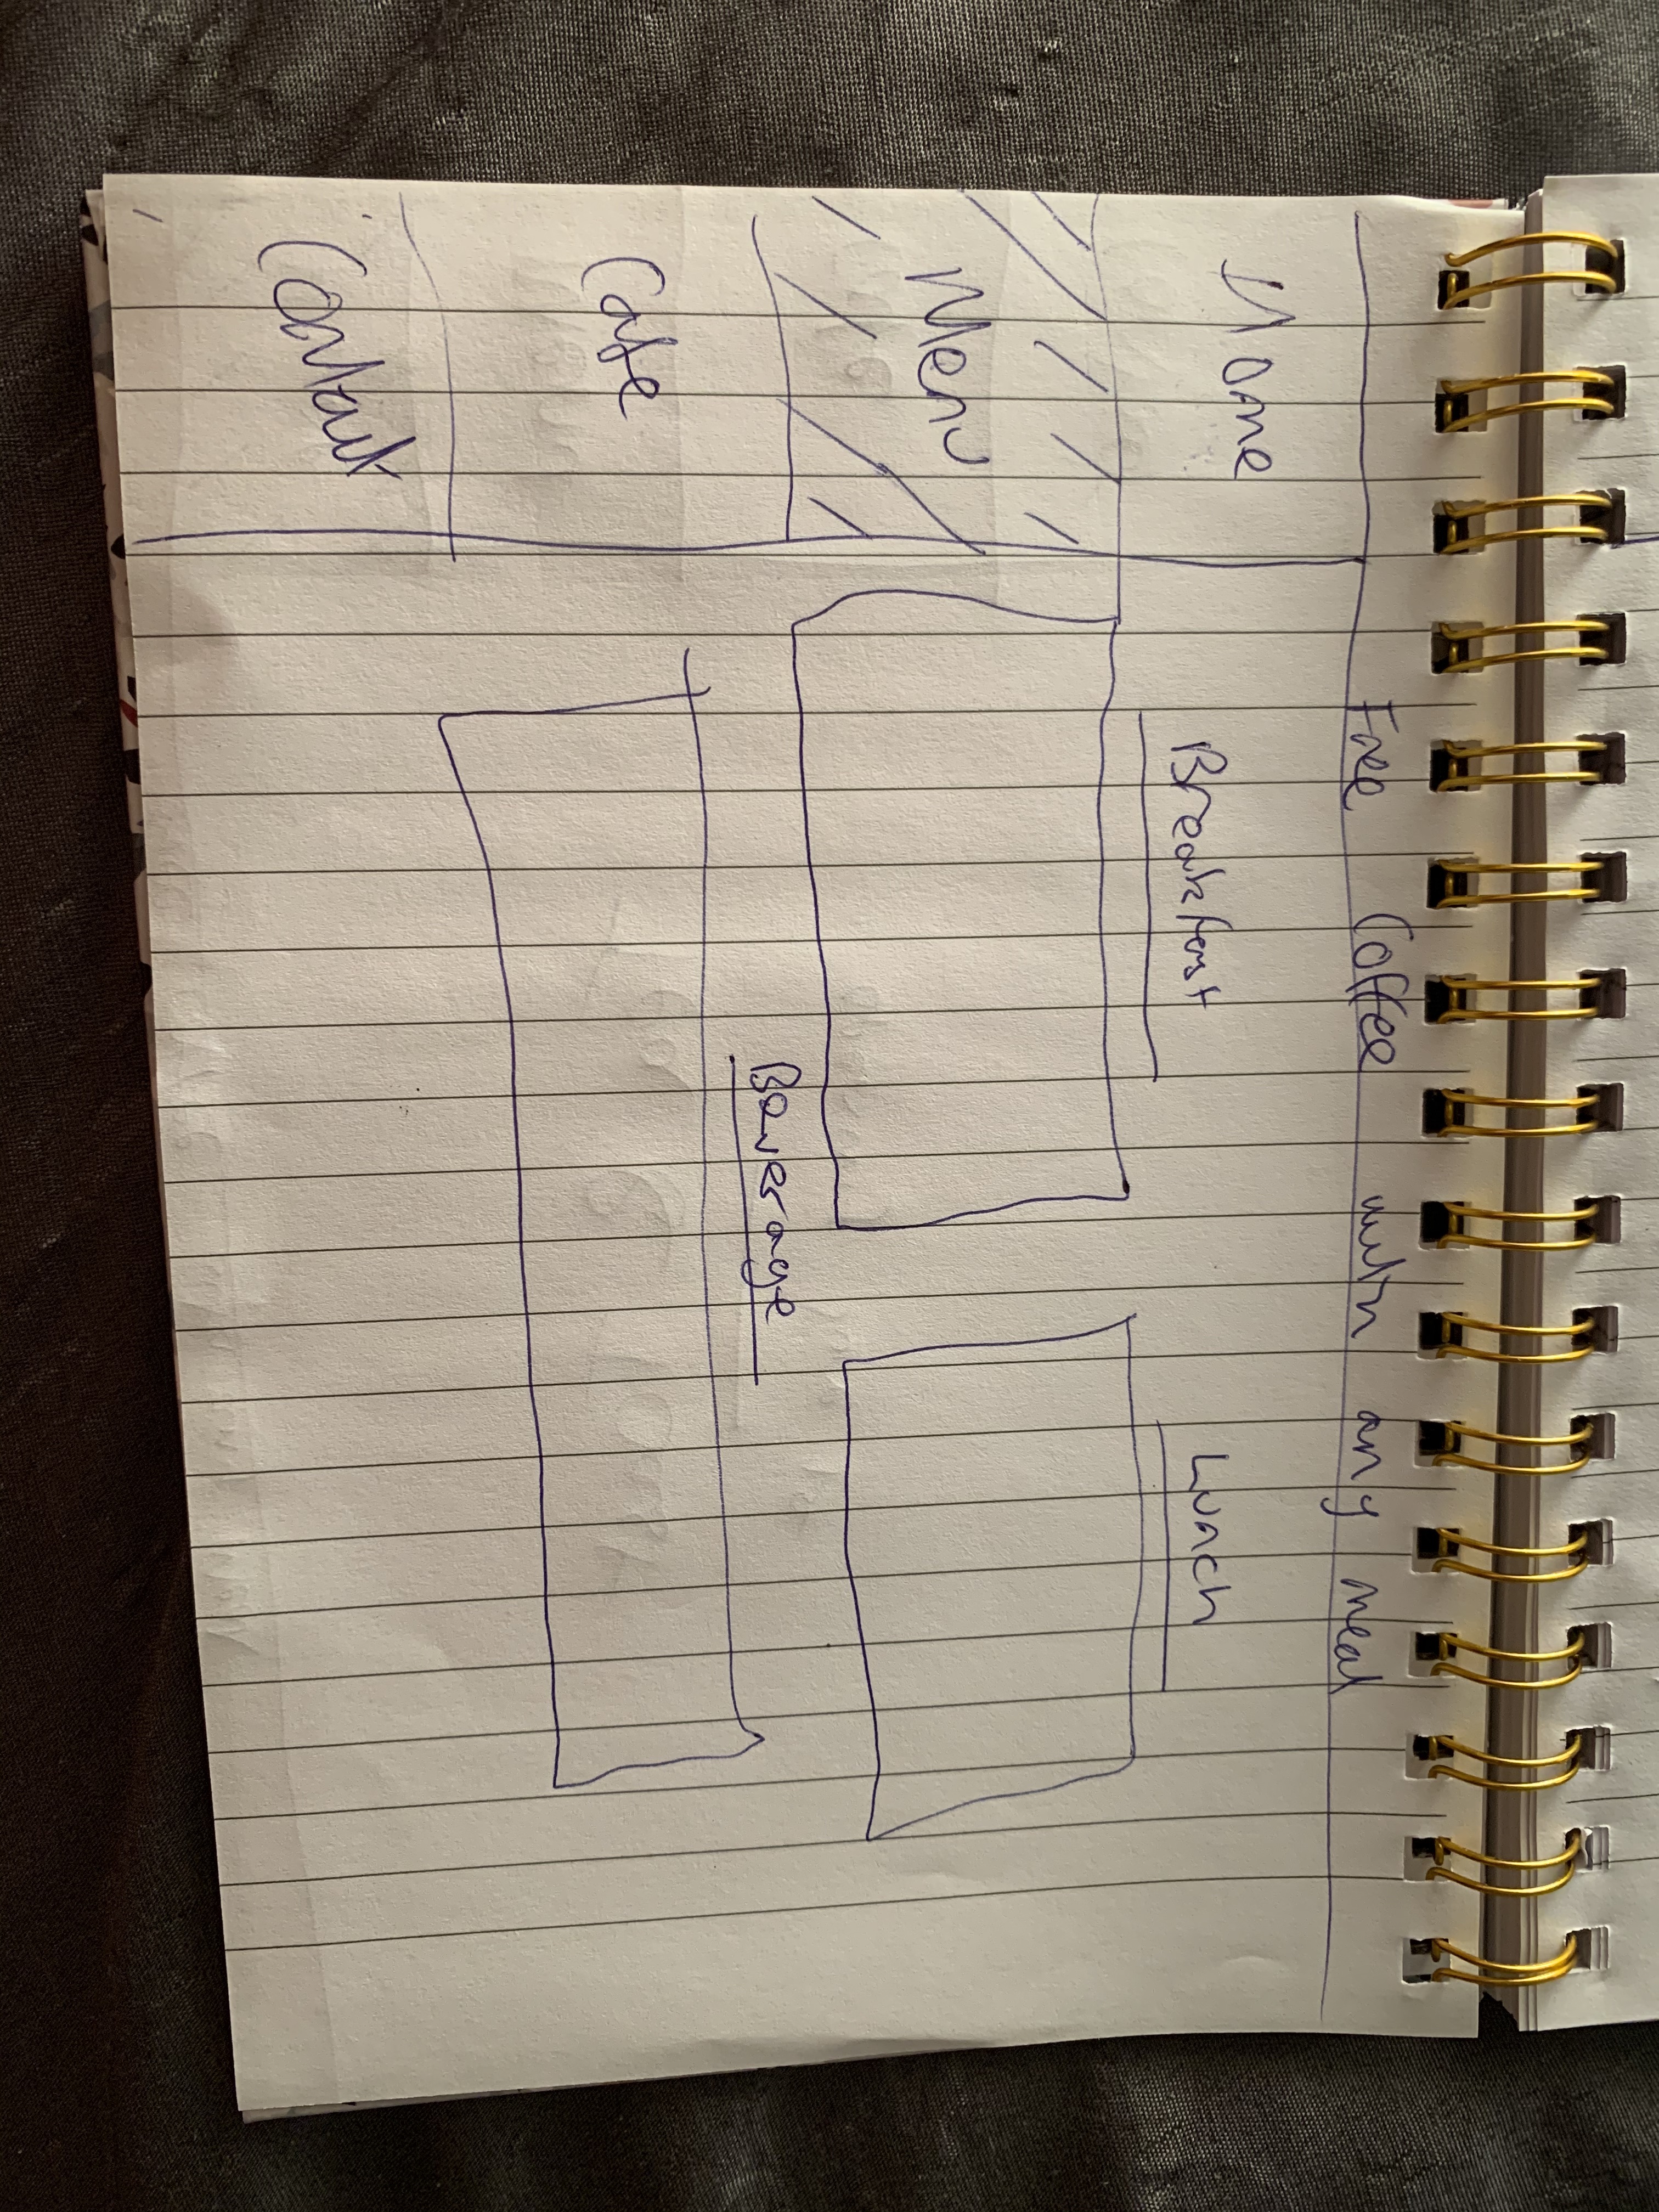 Free Coffee with any meal
Home
Menu
Cafe
Contact
Breakfast
Lunch
Beverage